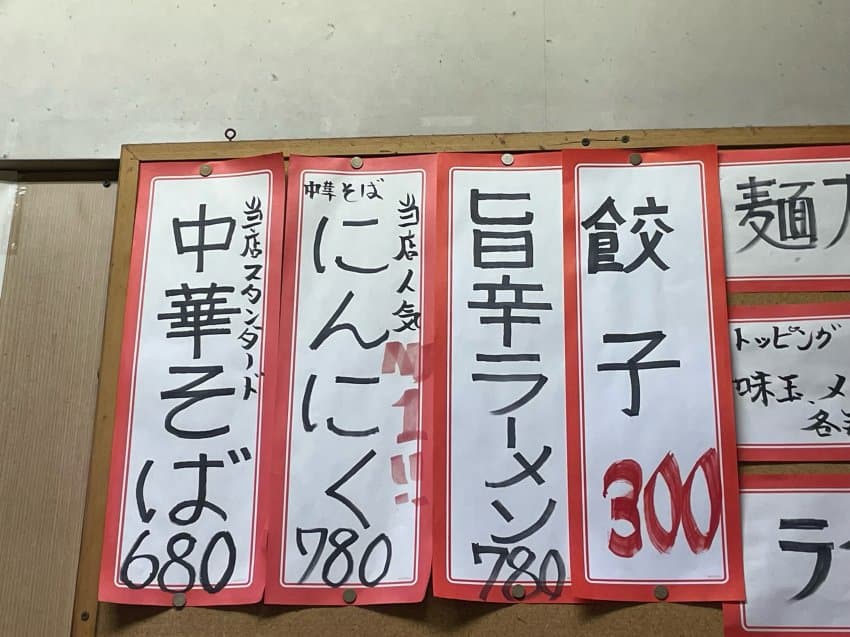 当店スタンダード
中華そば
680
当店人気
No1!!
中華そば
にんにく
780
旨辛ラーメン
780
餃子
300
麺
トッピング
味玉、メ
各
ラ